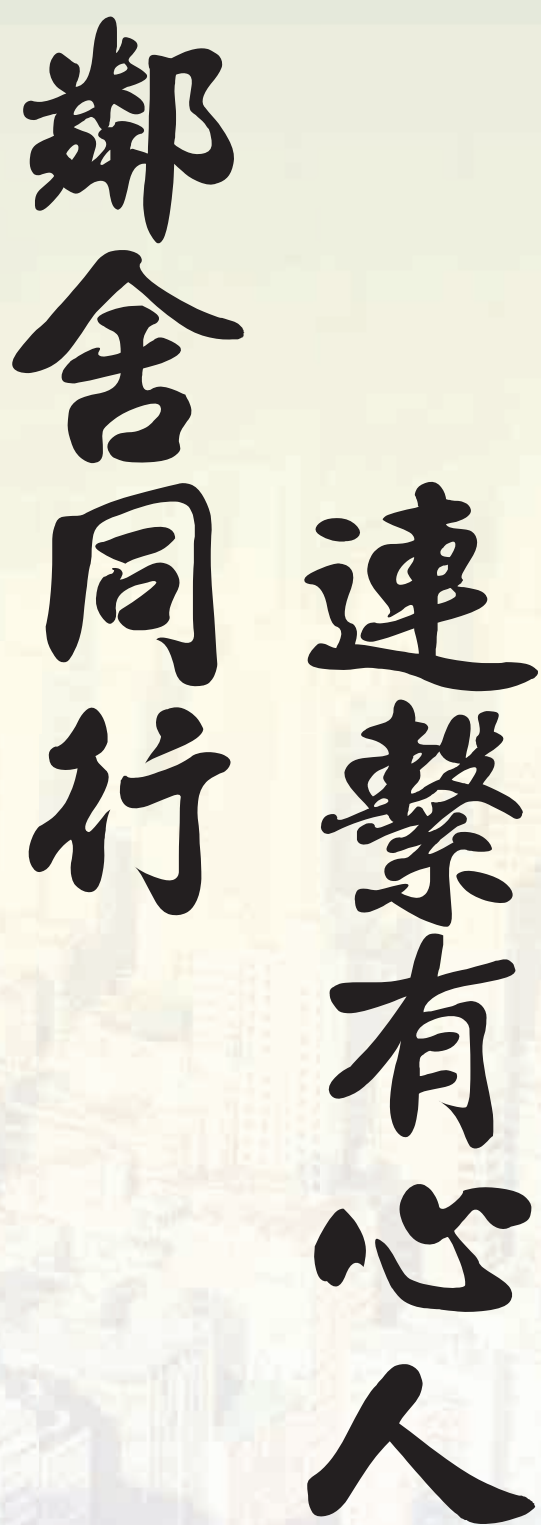 鄰舍同行
連繫有心人